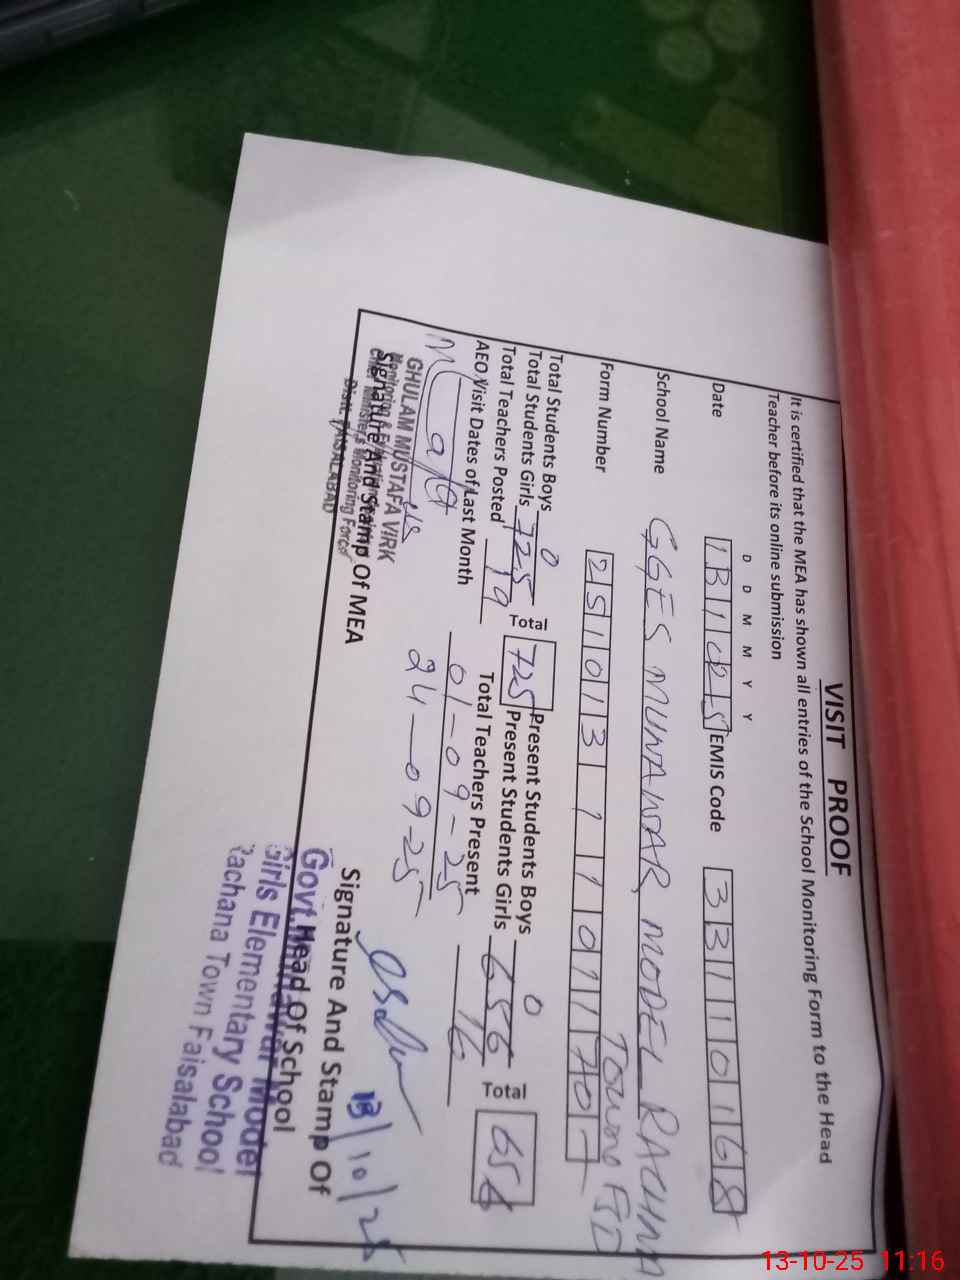 VISIT PROOF
It is certified that the MEA has shown all entries of the School Monitoring Form to the Head
Teacher before its online submission
D D M M Y Y
Date 131025 EMIS Code 33110168
School Name GGES MUNAWAR MODEL RACHNA
Town FSD
Form Number
Total Students Boys 0 Present Students Boys 0
Total Students Girls 725 Total 725 Present Students Girls 656 Total 656
Total Teachers Posted 19 Total Teachers Present 16
AEO Visit Dates of Last Month 01-09-25
24-09-25
GHULAM MUSTAFA VIRK
Monitoring & Evaluation
Chief Minister's Monitoring Force
Distt. FAISALABAD
Signature And Stamp Of MEA
13/10/25
Signature And Stamp Of
Head Of School
Govt. Munawar Model
Girls Elementary School
Rachana Town Faisalabad
13-10-25 11:16